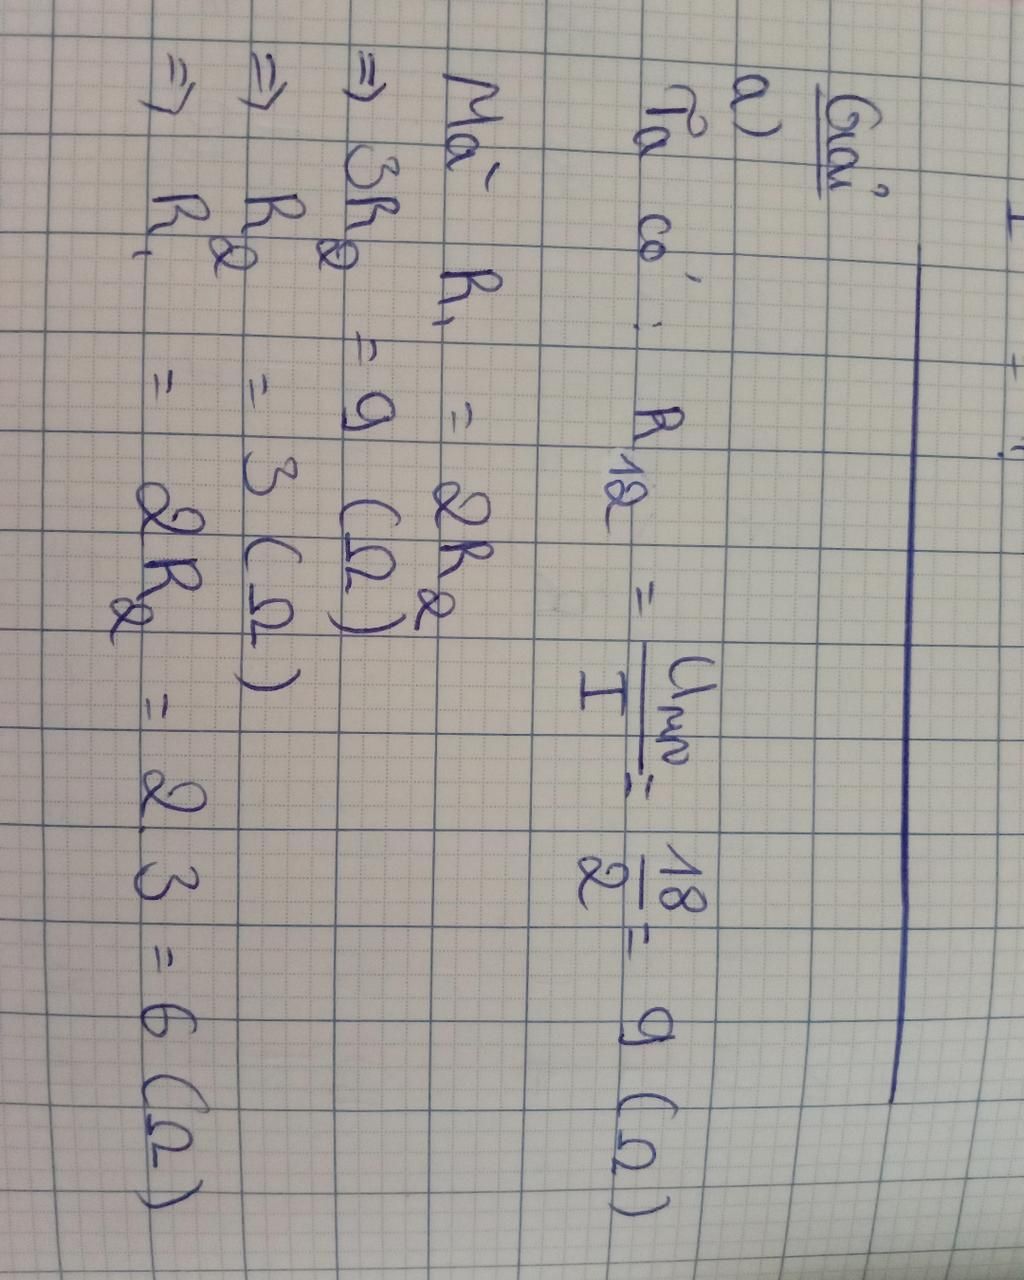 Giải
a)
Ta có: R₁₂ = U_MN/I = 18/2 = 9 (Ω)
Mà R₁ = 2R₂
=> 3R₂ = 9 (Ω)
=> R₂ = 3 (Ω)
=> R₁ = 2R₂ = 2.3 = 6 (Ω)